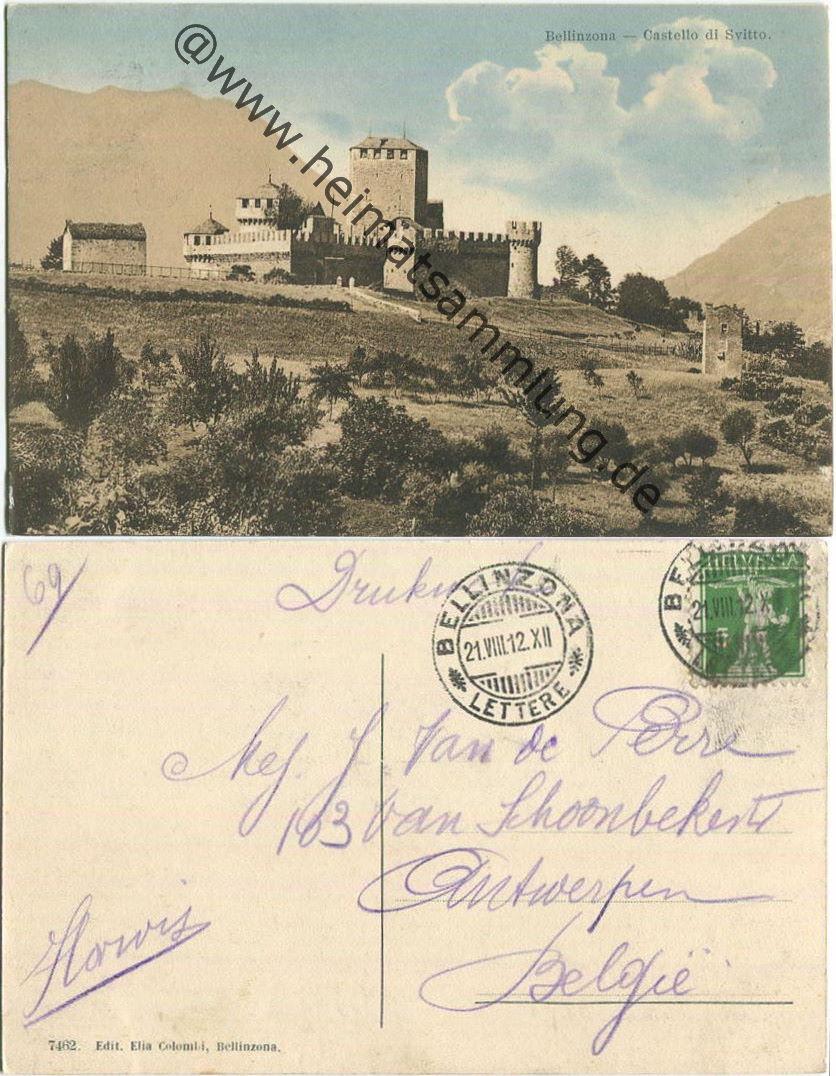 Bellinzona — Castello di Svitto.
@www.heimatsammlung.de
69/
BELLINZONA
21.VIII.12.XII
LETTERE
HELVETIA
21.VIII.12.X
Mej. J. Van de Perre
163 Van Schoonbekestr
Antwerpen
België
7462. Edit. Elia Colombi, Bellinzona.